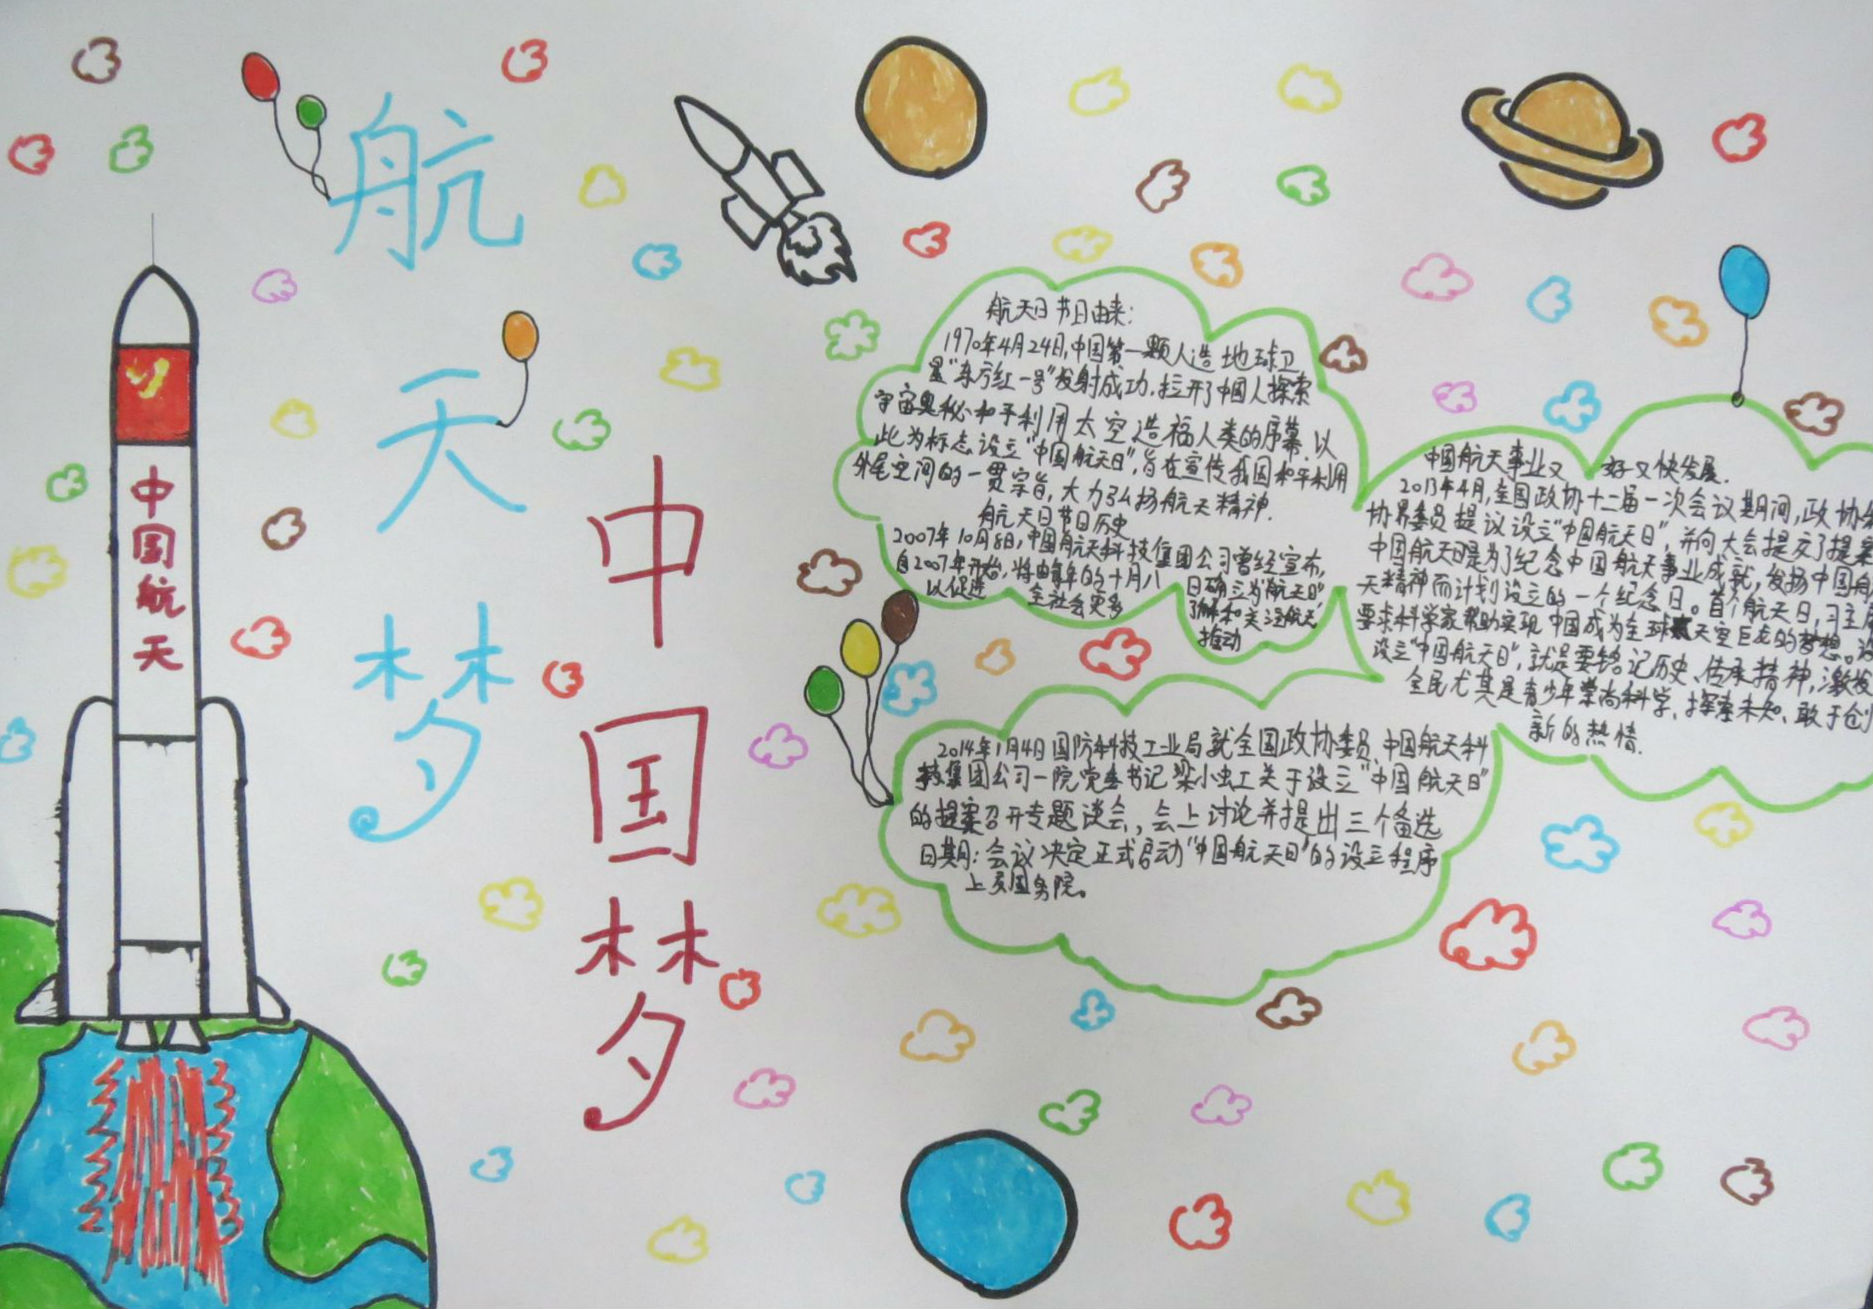 航天梦
中国梦
中国航天
航天日节日由来:
1970年4月24日,中国第一颗人造地球卫
星"东方红一号"发射成功,拉开了中国人探索
宇宙奥秘和平利用太空造福人类的序幕,以
此为标志设立"中国航天日",旨在宣传我国和平利用
外层空间的一贯宗旨,大力弘扬航天精神.
航天日节日历史
2007年10月8日,中国航天科技集团公司曾经宣布,
自2007年开始,将由每年的十月八日确立为"航天日"
以促进 全社会更多 了解和关注航天,
推动
中国航天事业又 好又快发展.
2013年4月,全国政协十二届一次会议期间,政协
协界委员提议设立"中国航天日",并向大会提交了提案
中国航天日是为了纪念中国航天事业成就,发扬中国航
天精神而计划设立的一个纪念日。首个航天日,习主席
要求科学家帮助实现中国成为全球天空巨龙的梦想。
设立"中国航天日",就是要铭记历史、传承精神,激发
全民尤其是青少年崇尚科学、探索未知、敢于创
新的热情.
2014年1月4日国防科技工业局就全国政协委员、中国航天科
技集团公司一院党委书记梁小虹关于设立"中国航天日"
的提案召开专题谈会,会上讨论并提出三个备选
日期:会议决定正式启动"中国航天日"的设立程序
上报国务院。